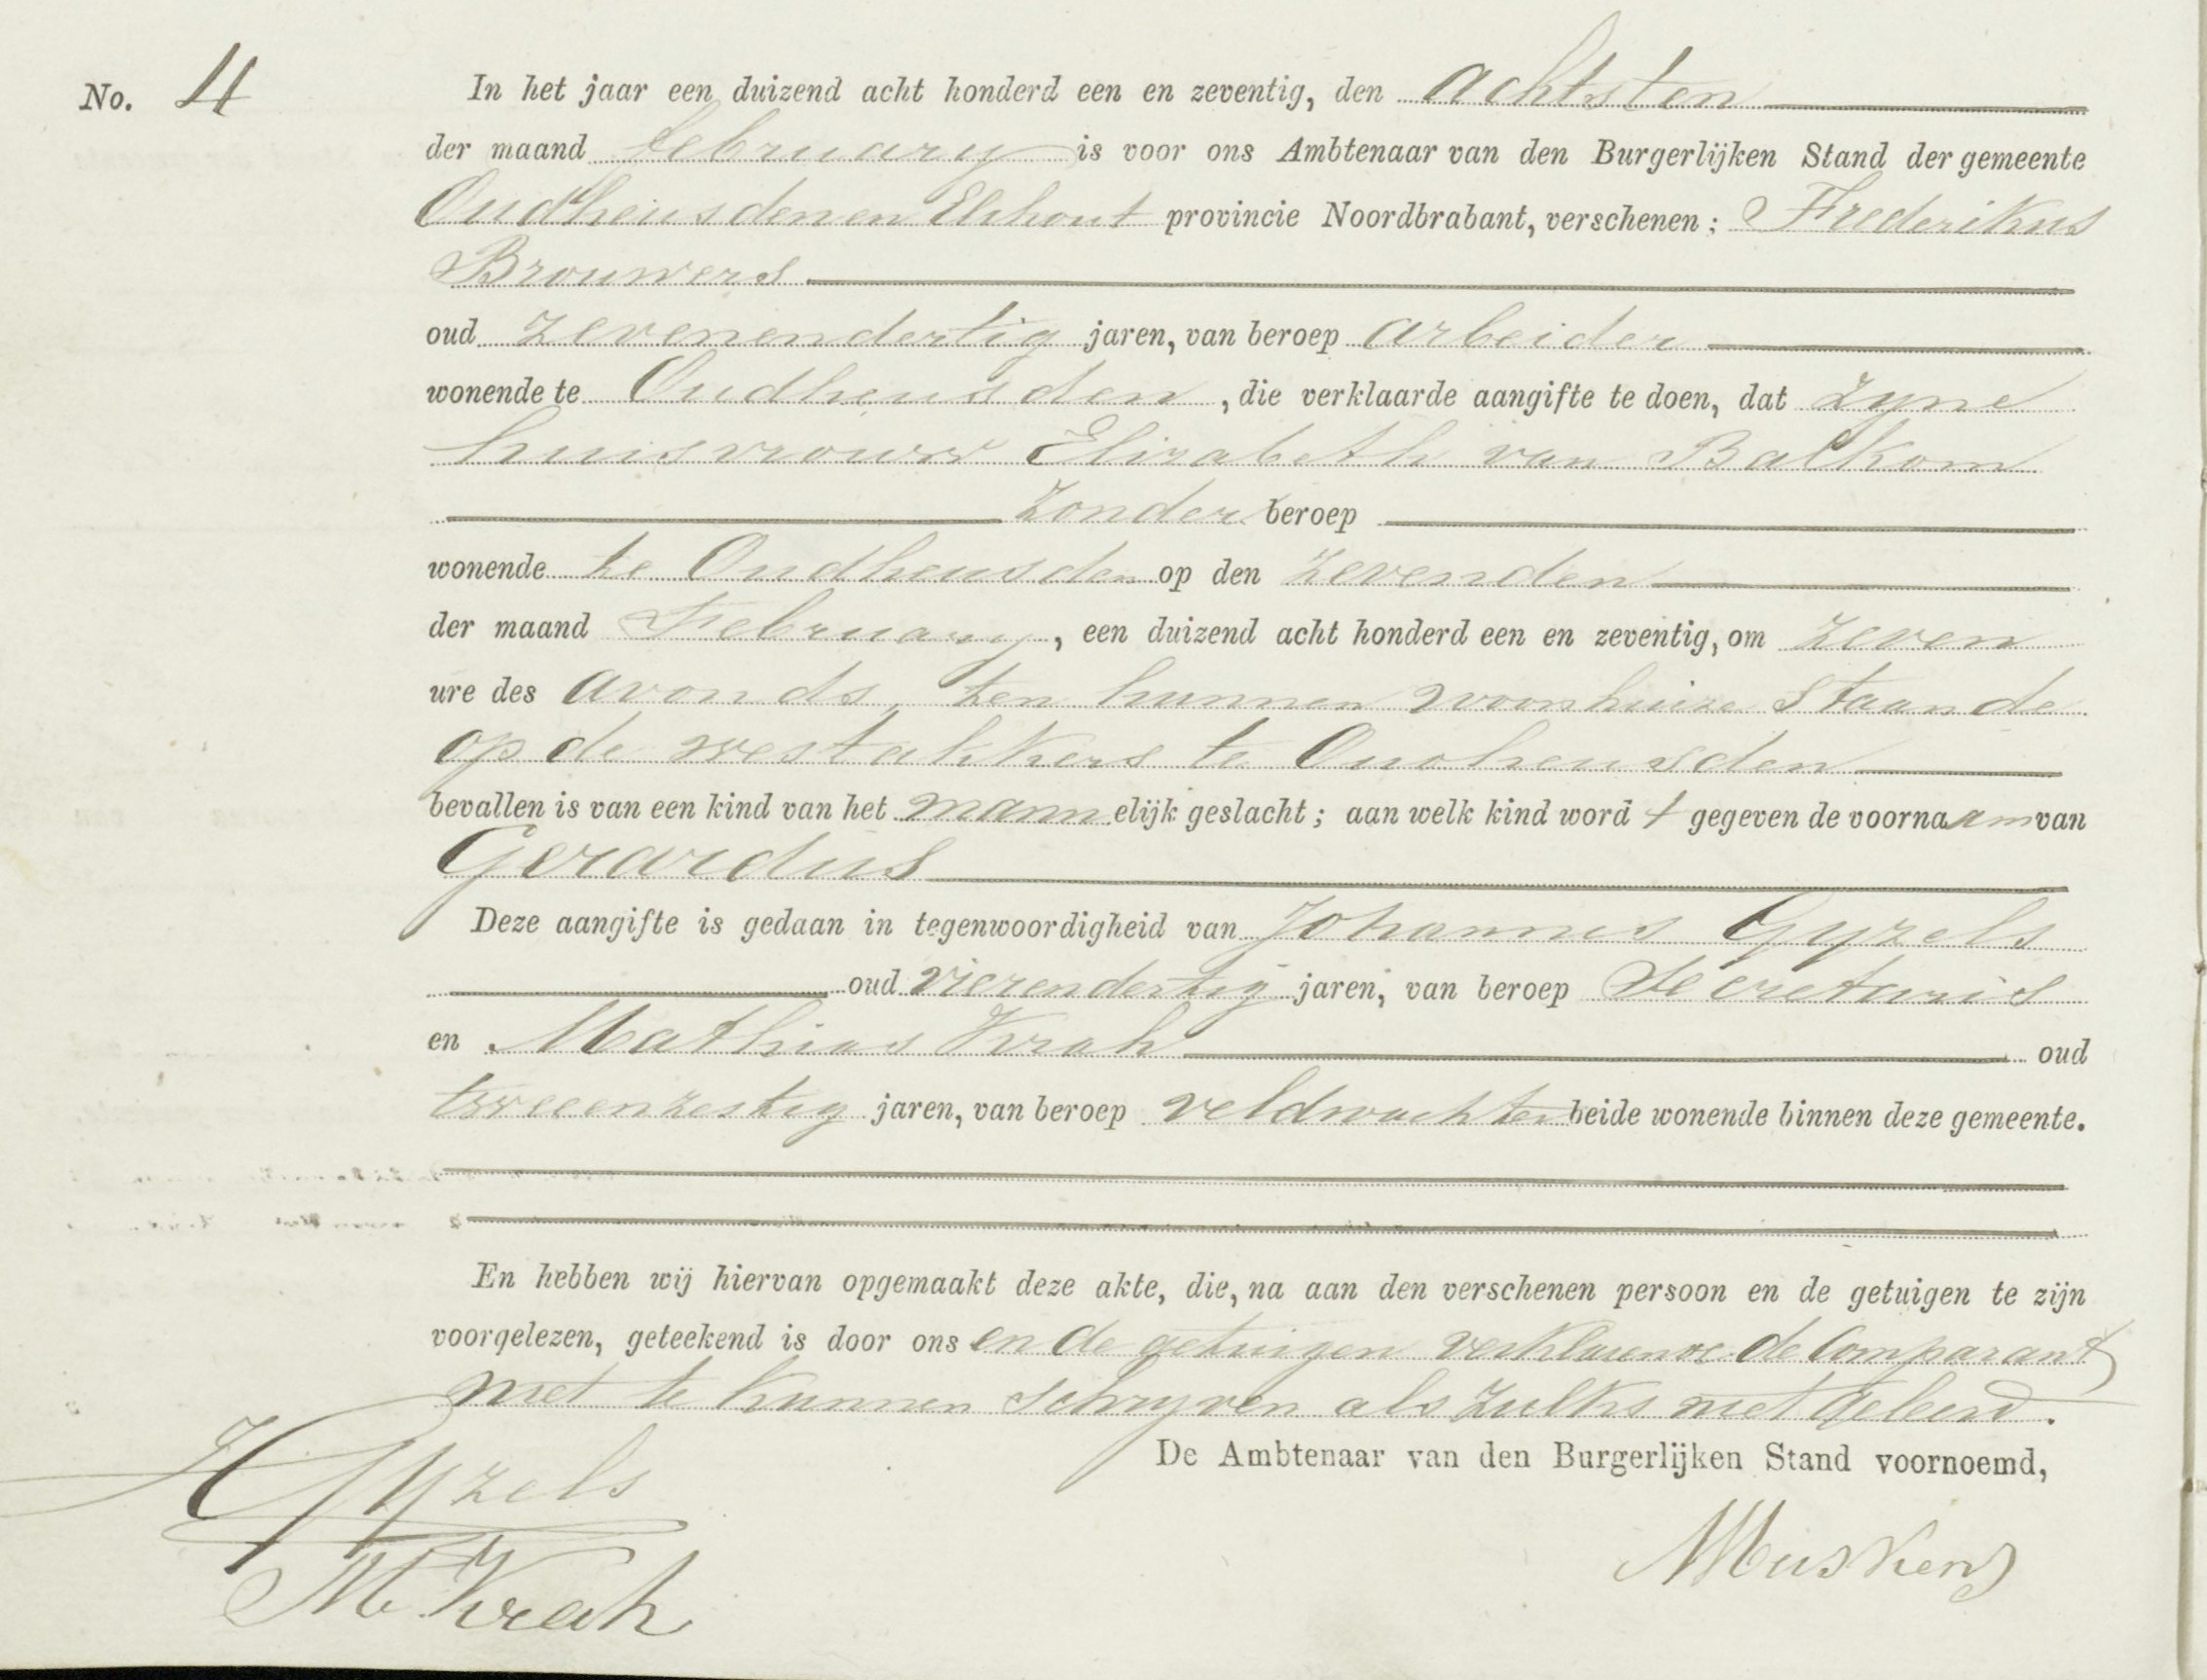 No. 4
In het jaar een duizend acht honderd een en zeventig, den achtsten
der maand february is voor ons Ambtenaar van den Burgerlijken Stand der gemeente
Oudheusden en Elshout provincie Noordbrabant, verschenen: Frederikus
Brouwers
oud zevenendertig jaren, van beroep arbeider
wonende te Oudheusden, die verklaarde aangifte te doen, dat zyne
huisvrouw Elizabeth van Balkom
zonder beroep
wonende te Oudheusden op den zevenden
der maand February, een duizend acht honderd een en zeventig, om zeven
ure des avonds, ten hunnen woonhuize staande
op de westakkers te Oudheusden
bevallen is van een kind van het mannelijk geslacht; aan welk kind wordt gegeven de voornaam van
Gerardus
Deze aangifte is gedaan in tegenwoordigheid van Johannes Gyzels
oud vierendertig jaren, van beroep Secretaris
en Mathias Krah oud
tweeenzestig jaren, van beroep veldwachter beide wonende binnen deze gemeente.
En hebben wij hiervan opgemaakt deze akte, die, na aan den verschenen persoon en de getuigen te zijn
voorgelezen, geteekend is door ons en de getuigen verklarende de Comparant
niet te kunnen schryven als zulks niet geleerd.
De Ambtenaar van den Burgerlijken Stand voornoemd,
J Gyzels
M Krah
Muskens